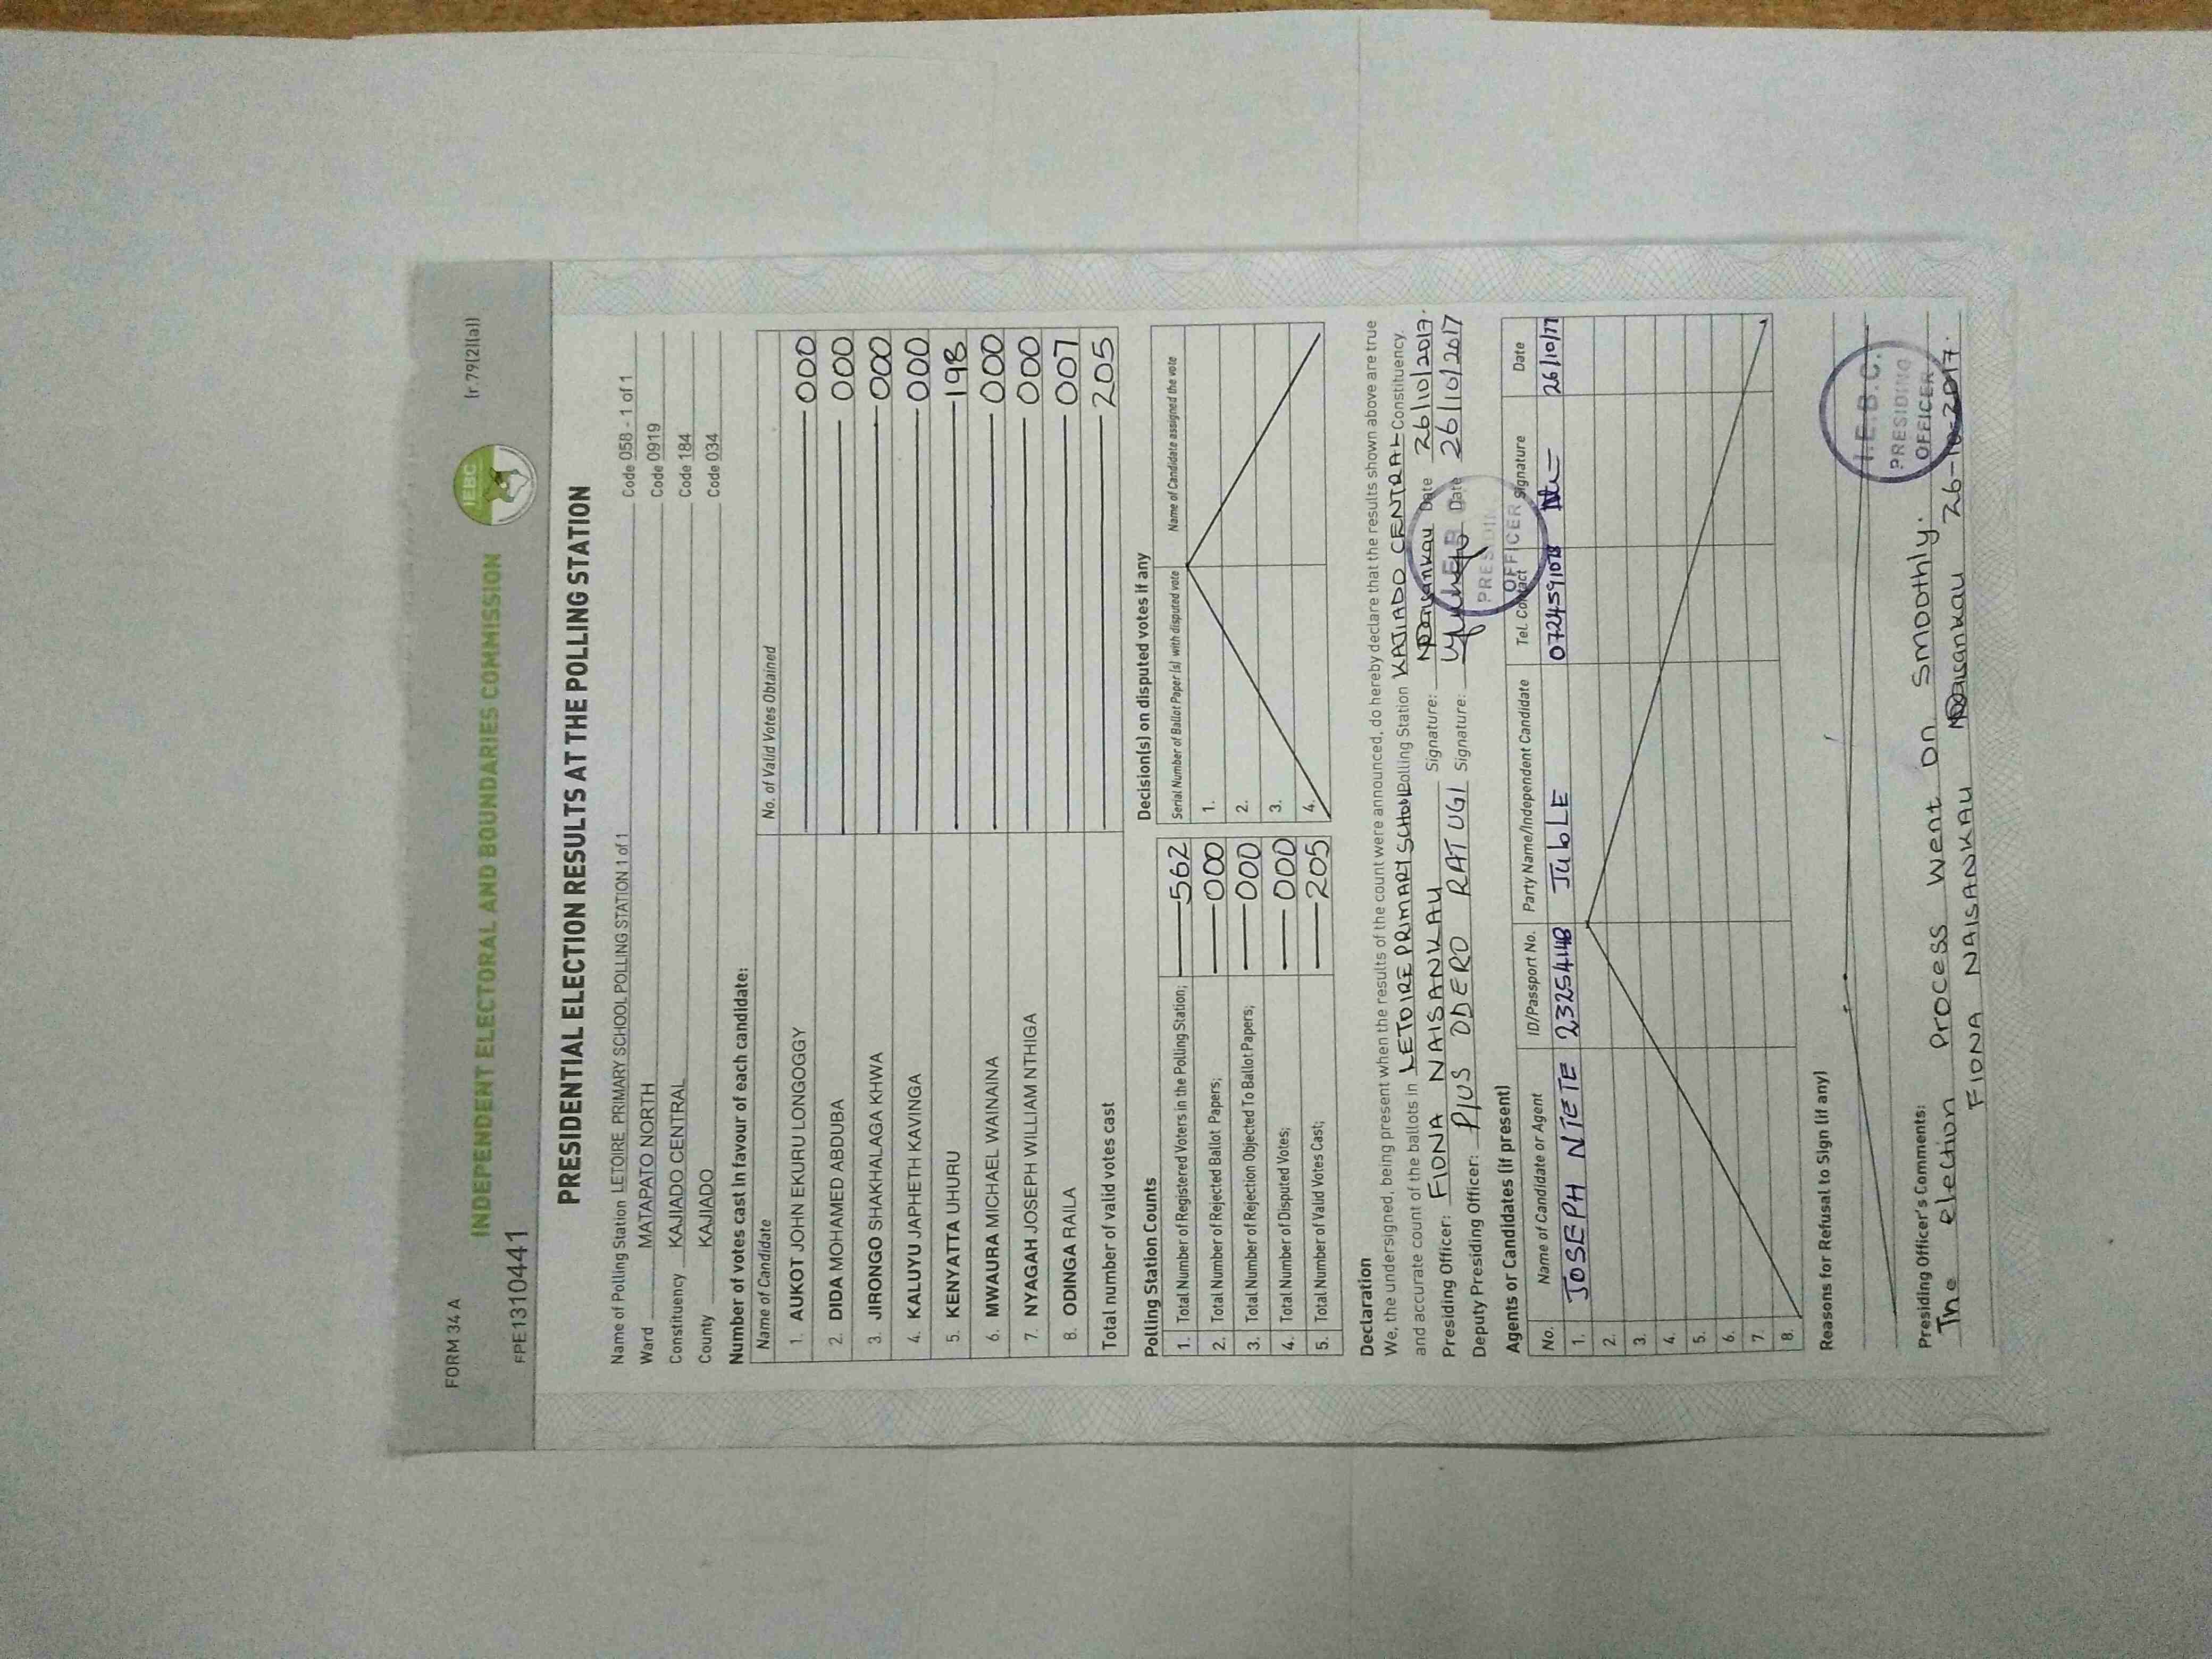 FORM 34 A
(r.79(2)(a))
IEBC
INDEPENDENT ELECTORAL AND BOUNDARIES COMMISSION
FPE1310441
PRESIDENTIAL ELECTION RESULTS AT THE POLLING STATION
Name of Polling Station LETOIRE PRIMARY SCHOOL POLLING STATION 1 of 1 Code 058 - 1 of 1
Ward MATAPATO NORTH Code 0919
Constituency KAJIADO CENTRAL Code 184
County KAJIADO Code 034
Number of votes cast in favour of each candidate:
Name of Candidate No. of Valid Votes Obtained
1. AUKOT JOHN EKURU LONGOGGY 000
2. DIDA MOHAMED ABDUBA 000
3. JIRONGO SHAKHALAGA KHWA 000
4. KALUYU JAPHETH KAVINGA 000
5. KENYATTA UHURU 198
6. MWAURA MICHAEL WAINAINA 000
7. NYAGAH JOSEPH WILLIAM NTHIGA 000
8. ODINGA RAILA 007
Total number of valid votes cast 205
Polling Station Counts
1. Total Number of Registered Voters in the Polling Station; 562
2. Total Number of Rejected Ballot Papers; 000
3. Total Number of Rejection Objected To Ballot Papers; 000
4. Total Number of Disputed Votes; 000
5. Total Number of Valid Votes Cast; 205
Decision(s) on disputed votes if any
Serial Number of Ballot Paper (s) with disputed vote Name of Candidate assigned the vote
1.
2.
3.
4.
Declaration
We, the undersigned, being present when the results of the count were announced, do hereby declare that the results shown above are true
and accurate count of the ballots in LETOIRE PRIMARY SCHOOL Polling Station KAJIADO CENTRAL Constituency.
Presiding Officer: FIONA NAISANKAU Signature: Date 26/10/2017.
Deputy Presiding Officer: PIUS ODERO RATUGI Signature: Date 26/10/2017
I.E.B.C.
PRESIDING
OFFICER
Agents or Candidates (if present)
No. Name of Candidate or Agent ID/Passport No. Party Name/Independent Candidate Tel. Contact Signature Date
1. JOSEPH NTETE JubLE 26/10/17
2.
3.
4.
5.
6.
7.
8.
Reasons for Refusal to Sign (if any)
I.E.B.C.
PRESIDING
OFFICER
Presiding Officer's Comments:
The election process went on smoothly.
FIONA NAISANKAU 26-10-2017.